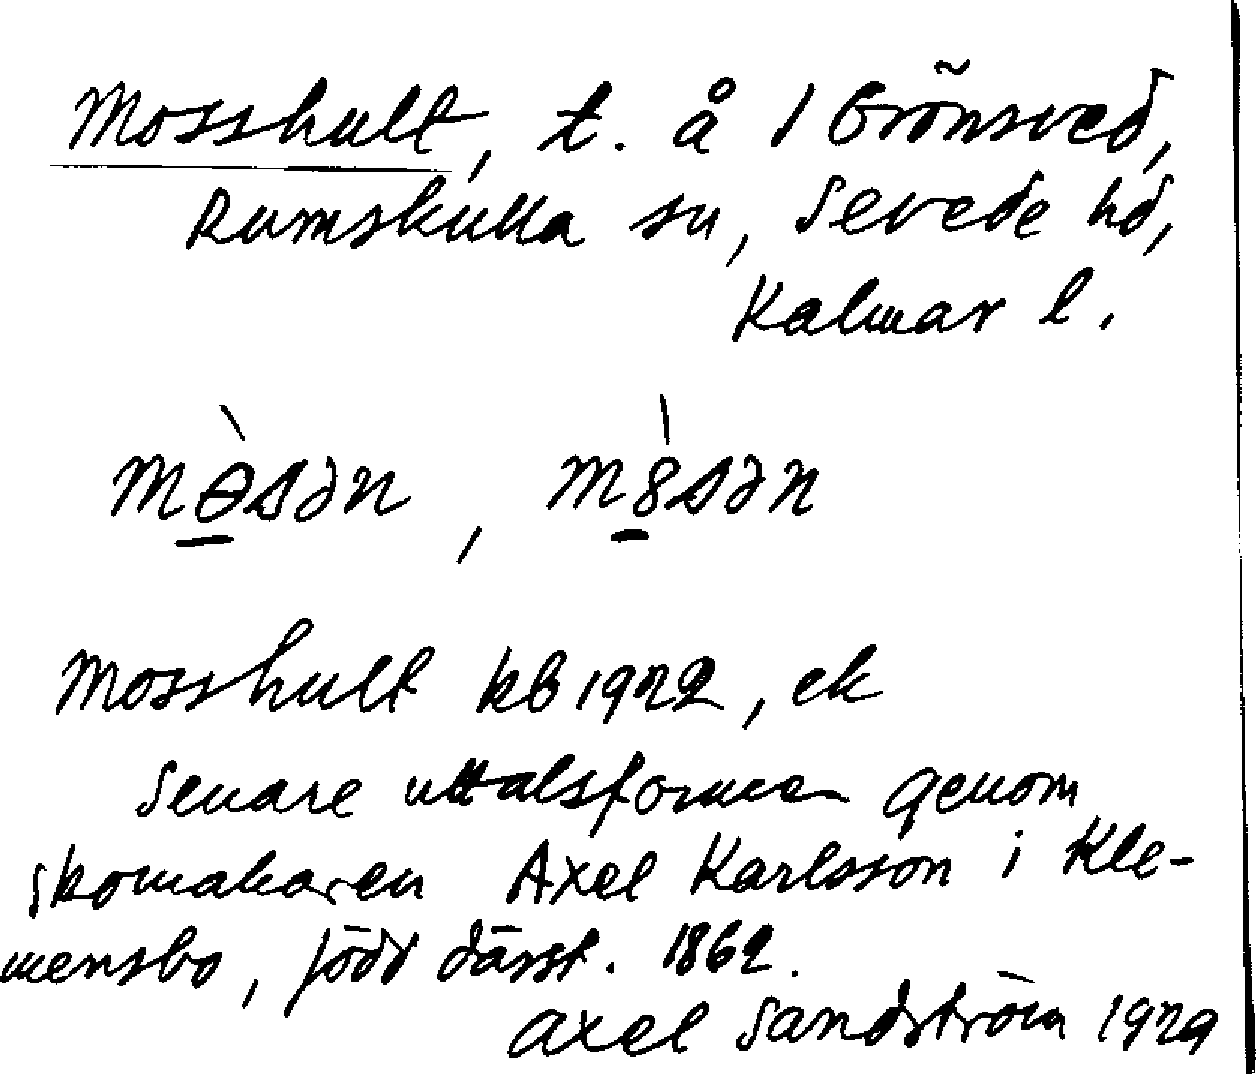 Mosshult, t. å 1 Grönsved,
Rumskulla sn, Sevede hd,
Kalmar l.
mɵ̀sən, m8̀sən
Mosshult kb 1922, ek
Senare uttalsformen genom
skomakaren Axel Karlsson i Kle-
mensbo, född därst. 1862.
Axel Sandström 1929